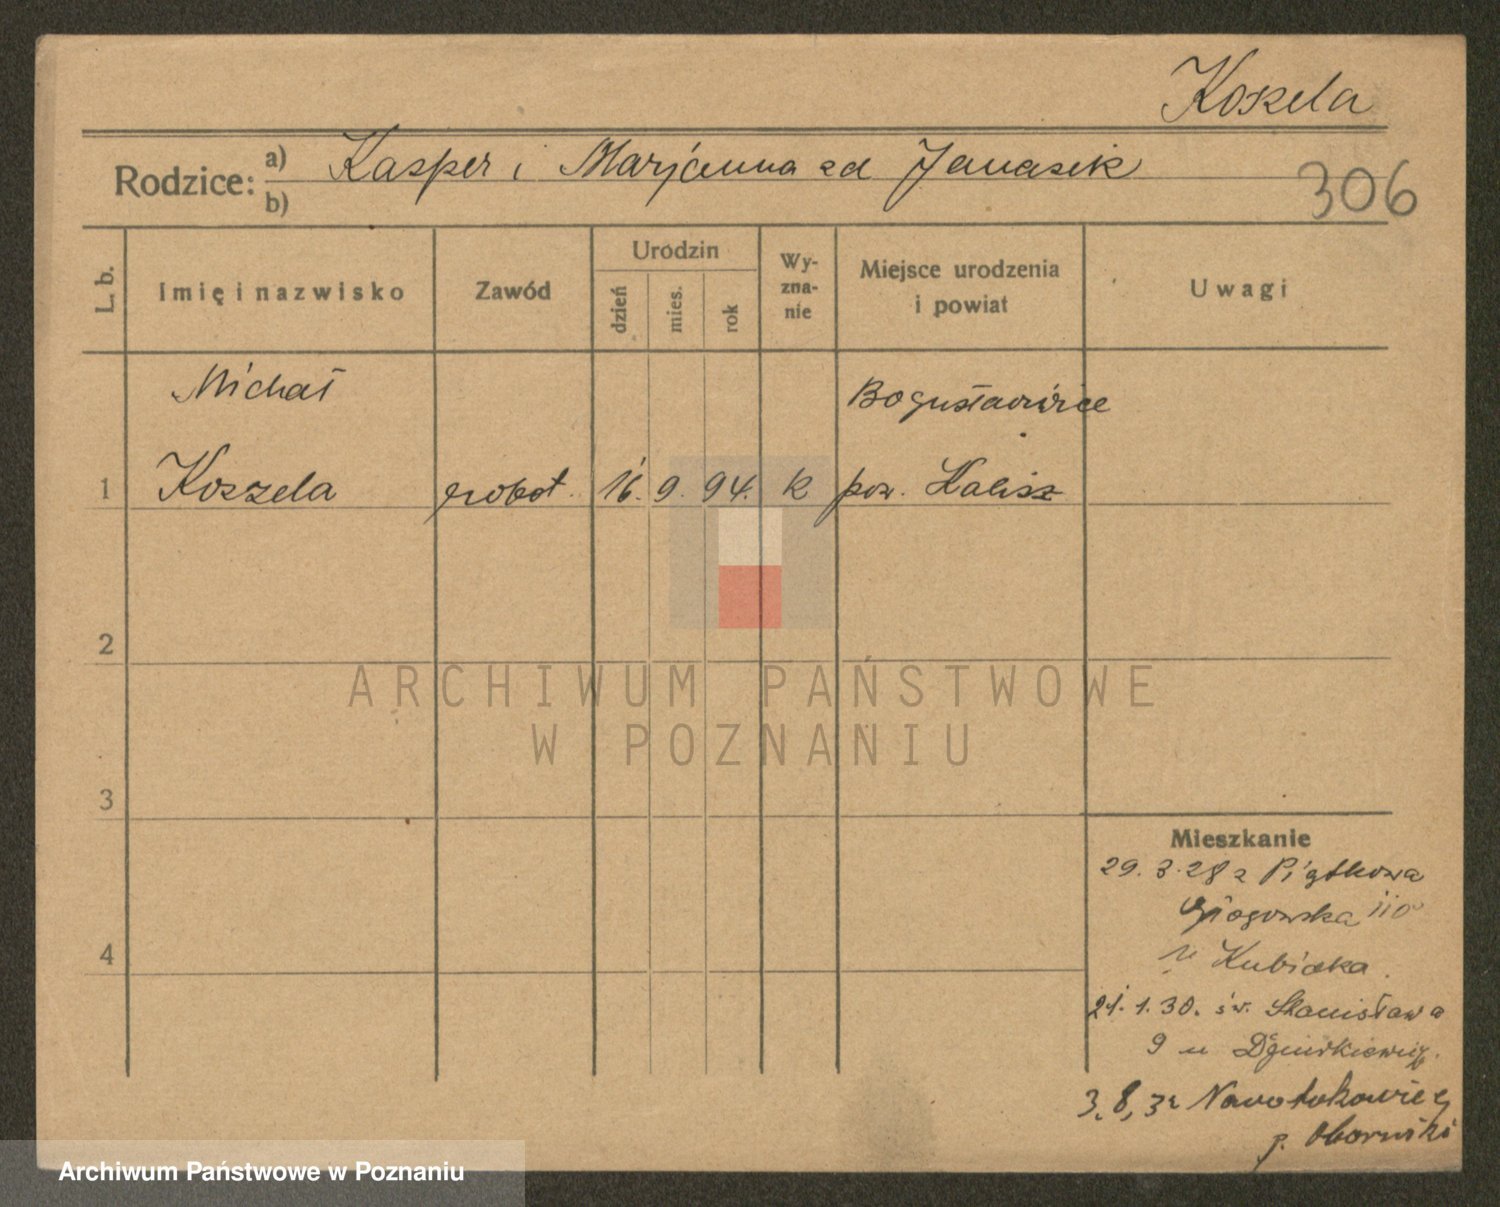 Koszela
Rodzice: a) Kasper i Marjanna zd Janasik
b)
306
L. b.
Imię i nazwisko
Zawód
Urodzin
dzień
mies.
rok
Wy-
zna-
nie
Miejsce urodzenia
i powiat
Uwagi
Michał
Bogusławice
1 Koszela robot. 16. 9. 94. k pow. Kalisz
2
3
4
Mieszkanie
29.3.28 z Piątkowa
Głogowska 110
u Kubiaka.
21.1.30. św. Stanisława
9 u
3.8,32
p. Oborniki
ARCHIWUM PAŃSTWOWE
W POZNANIU
Archiwum Państwowe w Poznaniu